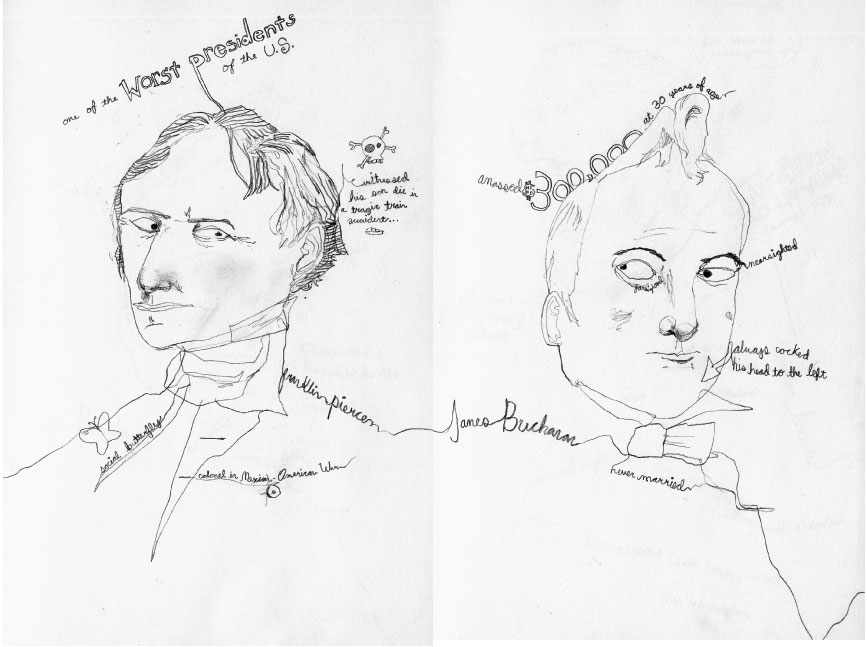 one of the Worst presidents
of the U.S.
witnessed
his son die in
a tragic train
accident...
franklin pierce
social butterfly
colonel in Mexican-American War
amassed $300,000 at 30 years of age
nearsighted
farsighted
always cocked
his head to the left
James Buchanan
never married